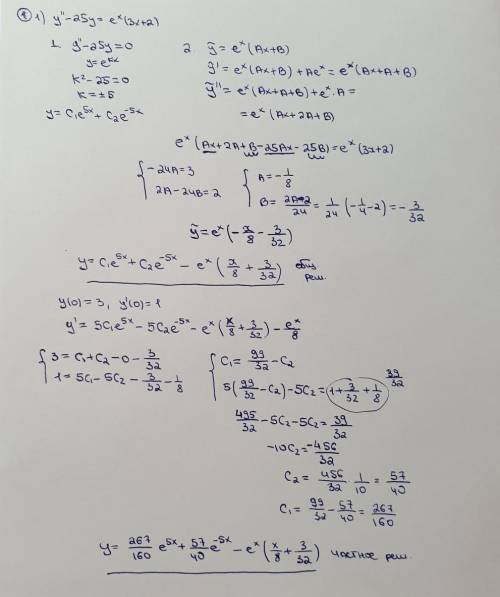 ① 1) y'' - 25y = eˣ(3x+2)
1. y'' - 25y = 0
y = eᵏˣ
k² - 25 = 0
k = ±5
y = C₁e⁵ˣ + C₂e⁻⁵ˣ
2. ỹ = eˣ(Ax+B)
ỹ' = eˣ(Ax+B) + Aeˣ = eˣ(Ax+A+B)
ỹ'' = eˣ(Ax+A+B) + eˣ·A =
= eˣ(Ax+2A+B)
eˣ(Ax+2A+B-25Ax-25B) = eˣ(3x+2)
{ -24A = 3
2A - 24B = 2
{ A = -1/8
B = (2A-2)/24 = 1/24 (-1/4 - 2) = -3/32
ỹ = eˣ(-x/8 - 3/32)
y = C₁e⁵ˣ + C₂e⁻⁵ˣ - eˣ(x/8 + 3/32) общ реш.
y(0) = 3, y'(0) = 1
y' = 5C₁e⁵ˣ - 5C₂e⁻⁵ˣ - eˣ(x/8 + 3/32) - eˣ/8
{ 3 = C₁ + C₂ - 0 - 3/32
1 = 5C₁ - 5C₂ - 3/32 - 1/8
{ C₁ = 99/32 - C₂
5(99/32 - C₂) - 5C₂ = 1 + 3/32 + 1/8
39/32
495/32 - 5C₂ - 5C₂ = 39/32
-10C₂ = -456/32
C₂ = 456/32 · 1/10 = 57/40
C₁ = 99/32 - 57/40 = 267/160
y = 267/160 e⁵ˣ + 57/40 e⁻⁵ˣ - eˣ(x/8 + 3/32) частное реш.